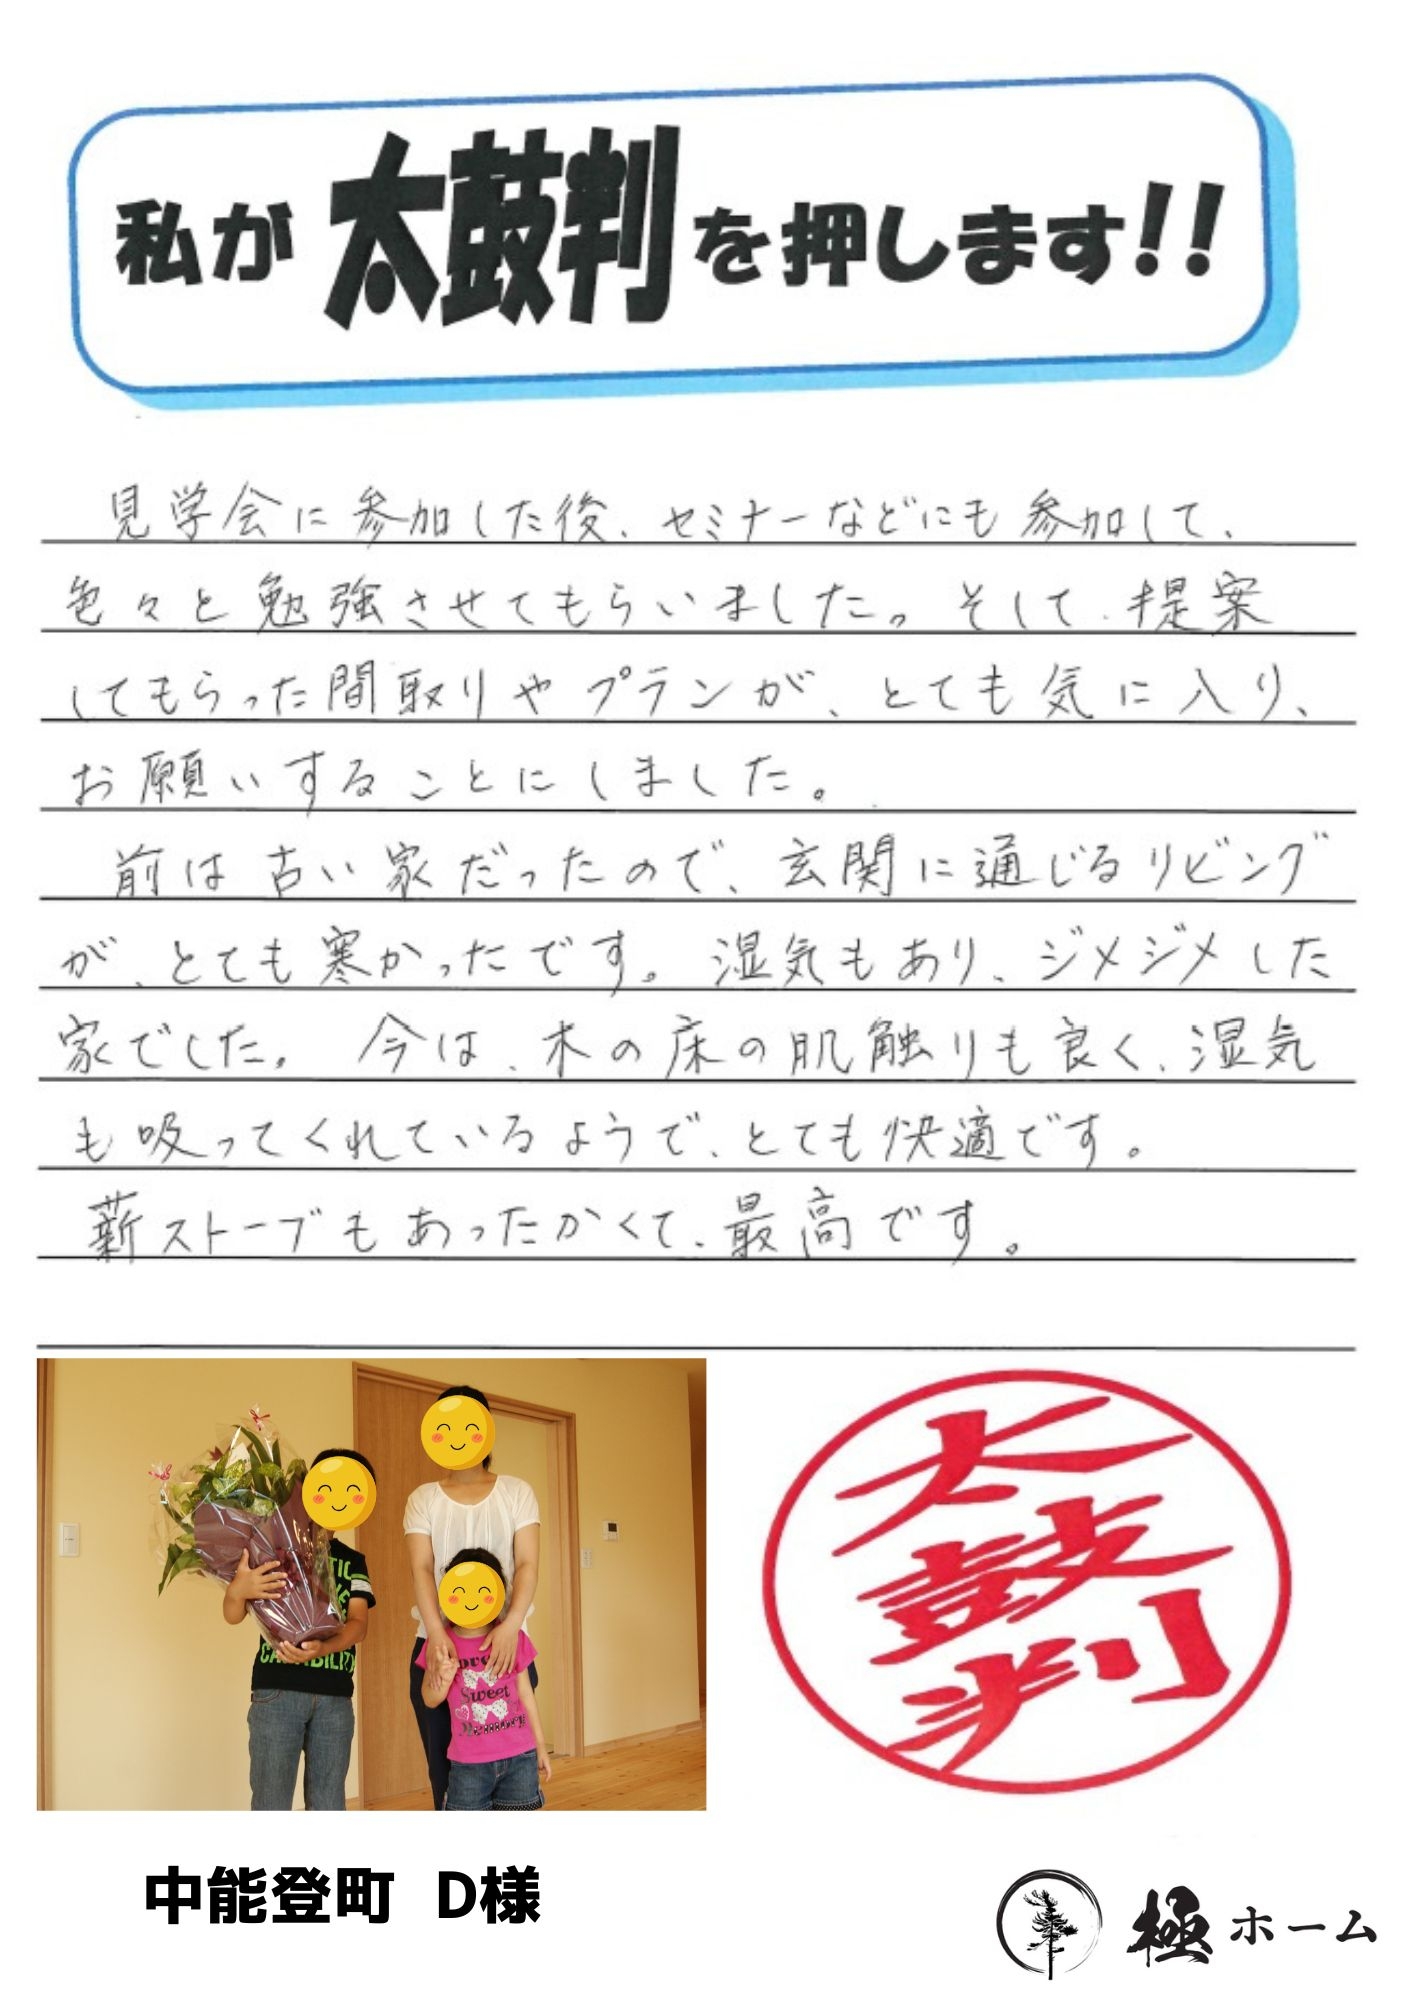 私が太鼓判を押します!!
見学会に参加した後、セミナーなどにも参加して、
色々と勉強させてもらいました。そして、提案
してもらった間取りやプランが、とても気に入り、
お願いすることにしました。
前は古い家だったので、玄関に通じるリビング
が、とても寒かったです。湿気もあり、ジメジメした
家でした。今は、木の床の肌触りも良く、湿気
も吸ってくれているようで、とても快適です。
薪ストーブもあったかくて、最高です。
Sweet
太鼓判
中能登町 D様
極ホーム